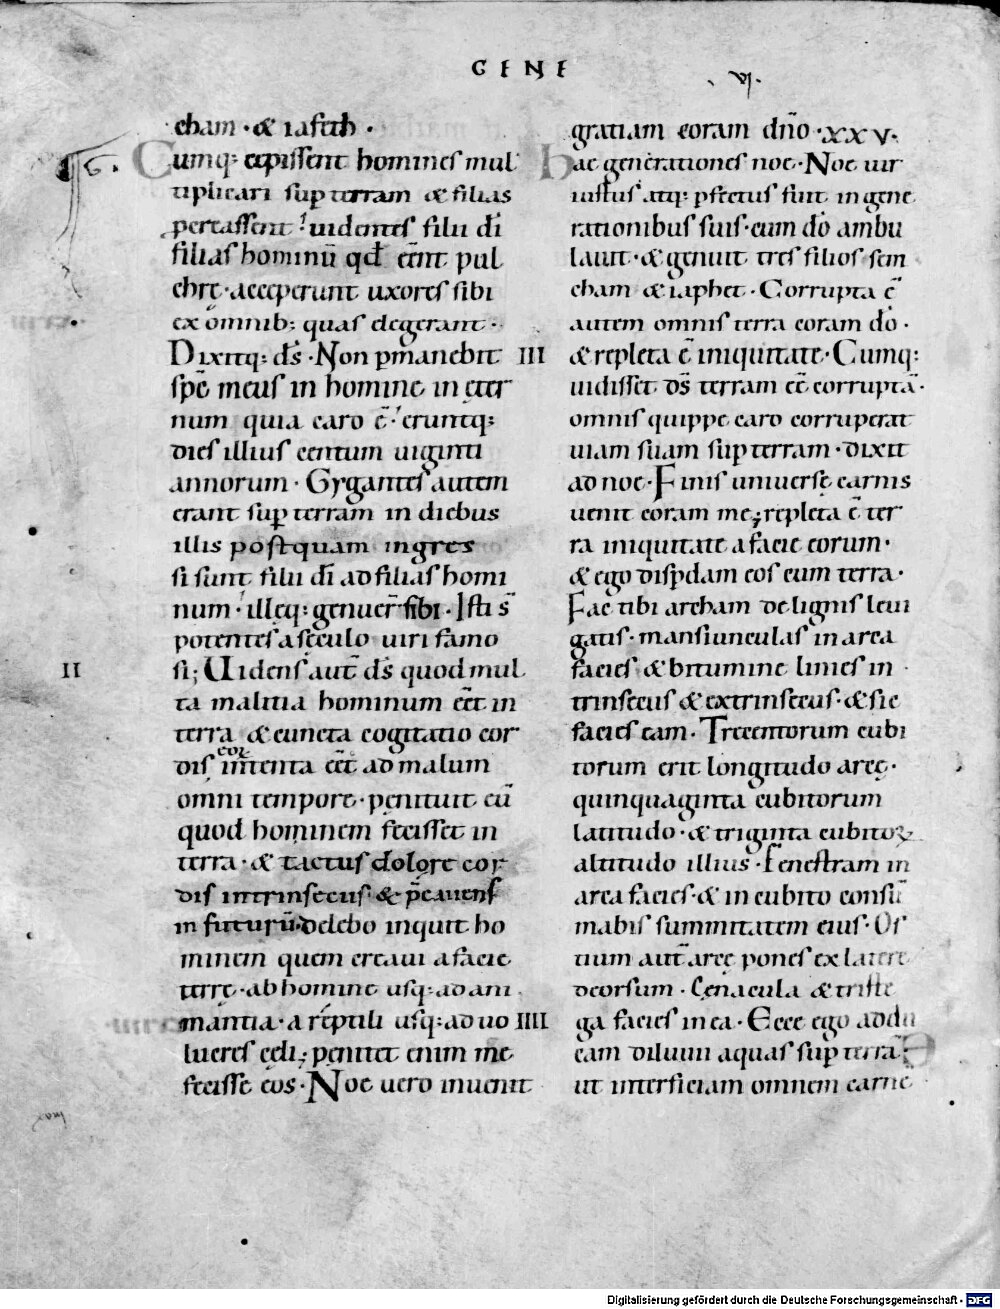 GENE
.VI.
cham · & iafeth ·
Cumq: cepissent homines mul
tiplicari sup terram & filias
pcreassent! uidentes filii dī
filias hominū qđ eēnt pul
chrę · acceperunt uxores sibi
ex omnib; quas elegerant ·
Dixitq: dš · Non pmanebit
spē meus in homine in ęter
num quia caro ē · eruntq:
dies illius centum uiginti
annorum · Gygantes autem
erant sup terram in diebus
illis postquam ingres
si sunt filii dī ad filias homi
num · illeq: genuer̄ sibi · Isti s̄
potentes a sęculo uiri famo
II
si; Uidens aut̄ dš quod mul
ta malitia hominum eēt in
terra & cuncta cogitatio cor
dis intenta eēt ad malum
omni tempore · penituit eū
quod hominem fecisset in
terra · & tactus dolore cor
dis intrinsecus · & p̄cauens
in futurū · Delebo inquit ho
minem quem creaui a facie
terrę · ab homine usq: ad ani
mantia · a reptili usq: ad uo
lucres cęli; penitet enim me
fecisse eos · Noe uero inuenit
gratiam coram dn̄o · XXV ·
Hae generationes noe · Noe uir
iustus atq: pfectus fuit in gene
rationibus suis · cum dō ambu
lauit · & genuit tres filios sem
cham & iaphet · Corrupta ē
autem omnis terra coram dō ·
III
& repleta ē iniquitate · Cumq:
uidisset dš terram eē corruptā ·
omnis quippe caro corruperat
uiam suam sup terram · dixit
ad noe · Finis uniuersę carnis
uenit coram me; repleta ē ter
ra iniquitate a facie eorum ·
& ego dispdam eos cum terra ·
Fac tibi archam de lignis leui
gatis · mansiunculas in arca
facies & bitumine linies in
trinsecus & extrinsecus · & sic
facies eam · Trecentorum cubi
torum erit longitudo arcę ·
quinquaginta cubitorum
latitudo · & triginta cubitoꝝ
altitudo illius · Fenestram in
arca facies · & in cubito consū
mabis summitatem eius · Os
tium aut̄ arcę pones ex latere
deorsum · Cęnacula & triste
IIII
ga facies in ea · Ecce ego addu
cam diluuii aquas sup terrā
ut interficiam omnem carnē
Digitalisierung gefördert durch die Deutsche Forschungsgemeinschaft - DFG